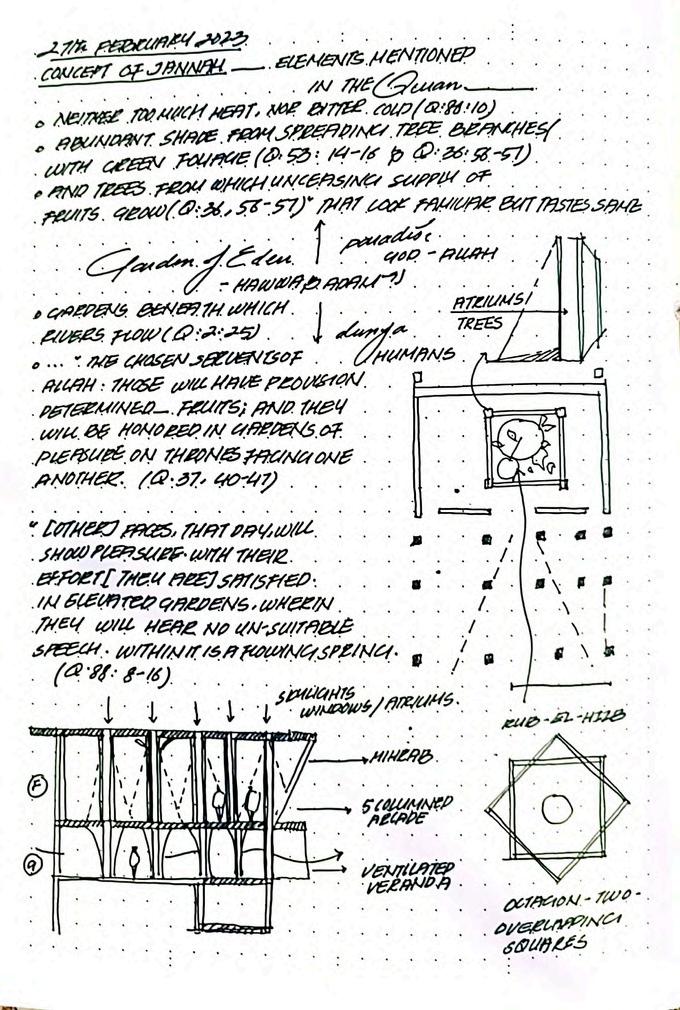 27TH FEBRUARY 2023
CONCEPT OF JANNAH — ELEMENTS MENTIONED
IN THE Quran
• NEITHER TOO MUCH HEAT, NOR BITTER COLD (Q:88:10)
• ABUNDANT SHADE FROM SPREADING TREE BRANCHES/
WITH GREEN FOLIAGE (Q:53: 14-16 & Q:36:56-57)
• AND TREES FROM WHICH UNCEASING SUPPLY OF
FRUITS GROW (Q:36, 56-57)" THAT LOOK FAMILIAR BUT TASTES SAME
Garden of Eden
- HAWWA & ADAM
paradise
GOD - ALLAH
• GARDENS BENEATH WHICH
RIVERS FLOW (Q:2:25)
dunya
HUMANS
• ... " THE CHOSEN SERVENTS OF
ALLAH: THOSE WILL HAVE PROVISION
DETERMINED_ FRUITS; AND THEY
WILL BE HONORED IN GARDENS OF
PLEASURE ON THRONES FACING ONE
ANOTHER. (Q:37, 40-47)
" [OTHER] FACES, THAT DAY, WILL
SHOW PLEASURE. WITH THEIR
EFFORT [THEY ARE] SATISFIED:
IN ELEVATED GARDENS, WHERIN
THEY WILL HEAR NO UN-SUITABLE
SPEECH. WITHIN IT IS A FLOWING SPRING.
(Q:88: 8-16)
ATRIUMS/
TREES
SKYLIGHTS
WINDOWS/ATRIUMS.
MIHRAB
5 COLUMNED
ARCADE
VENTILATED
VERANDA
F
G
RUB-EL-HIZB
OCTAGON - TWO -
OVERLAPPING
SQUARES